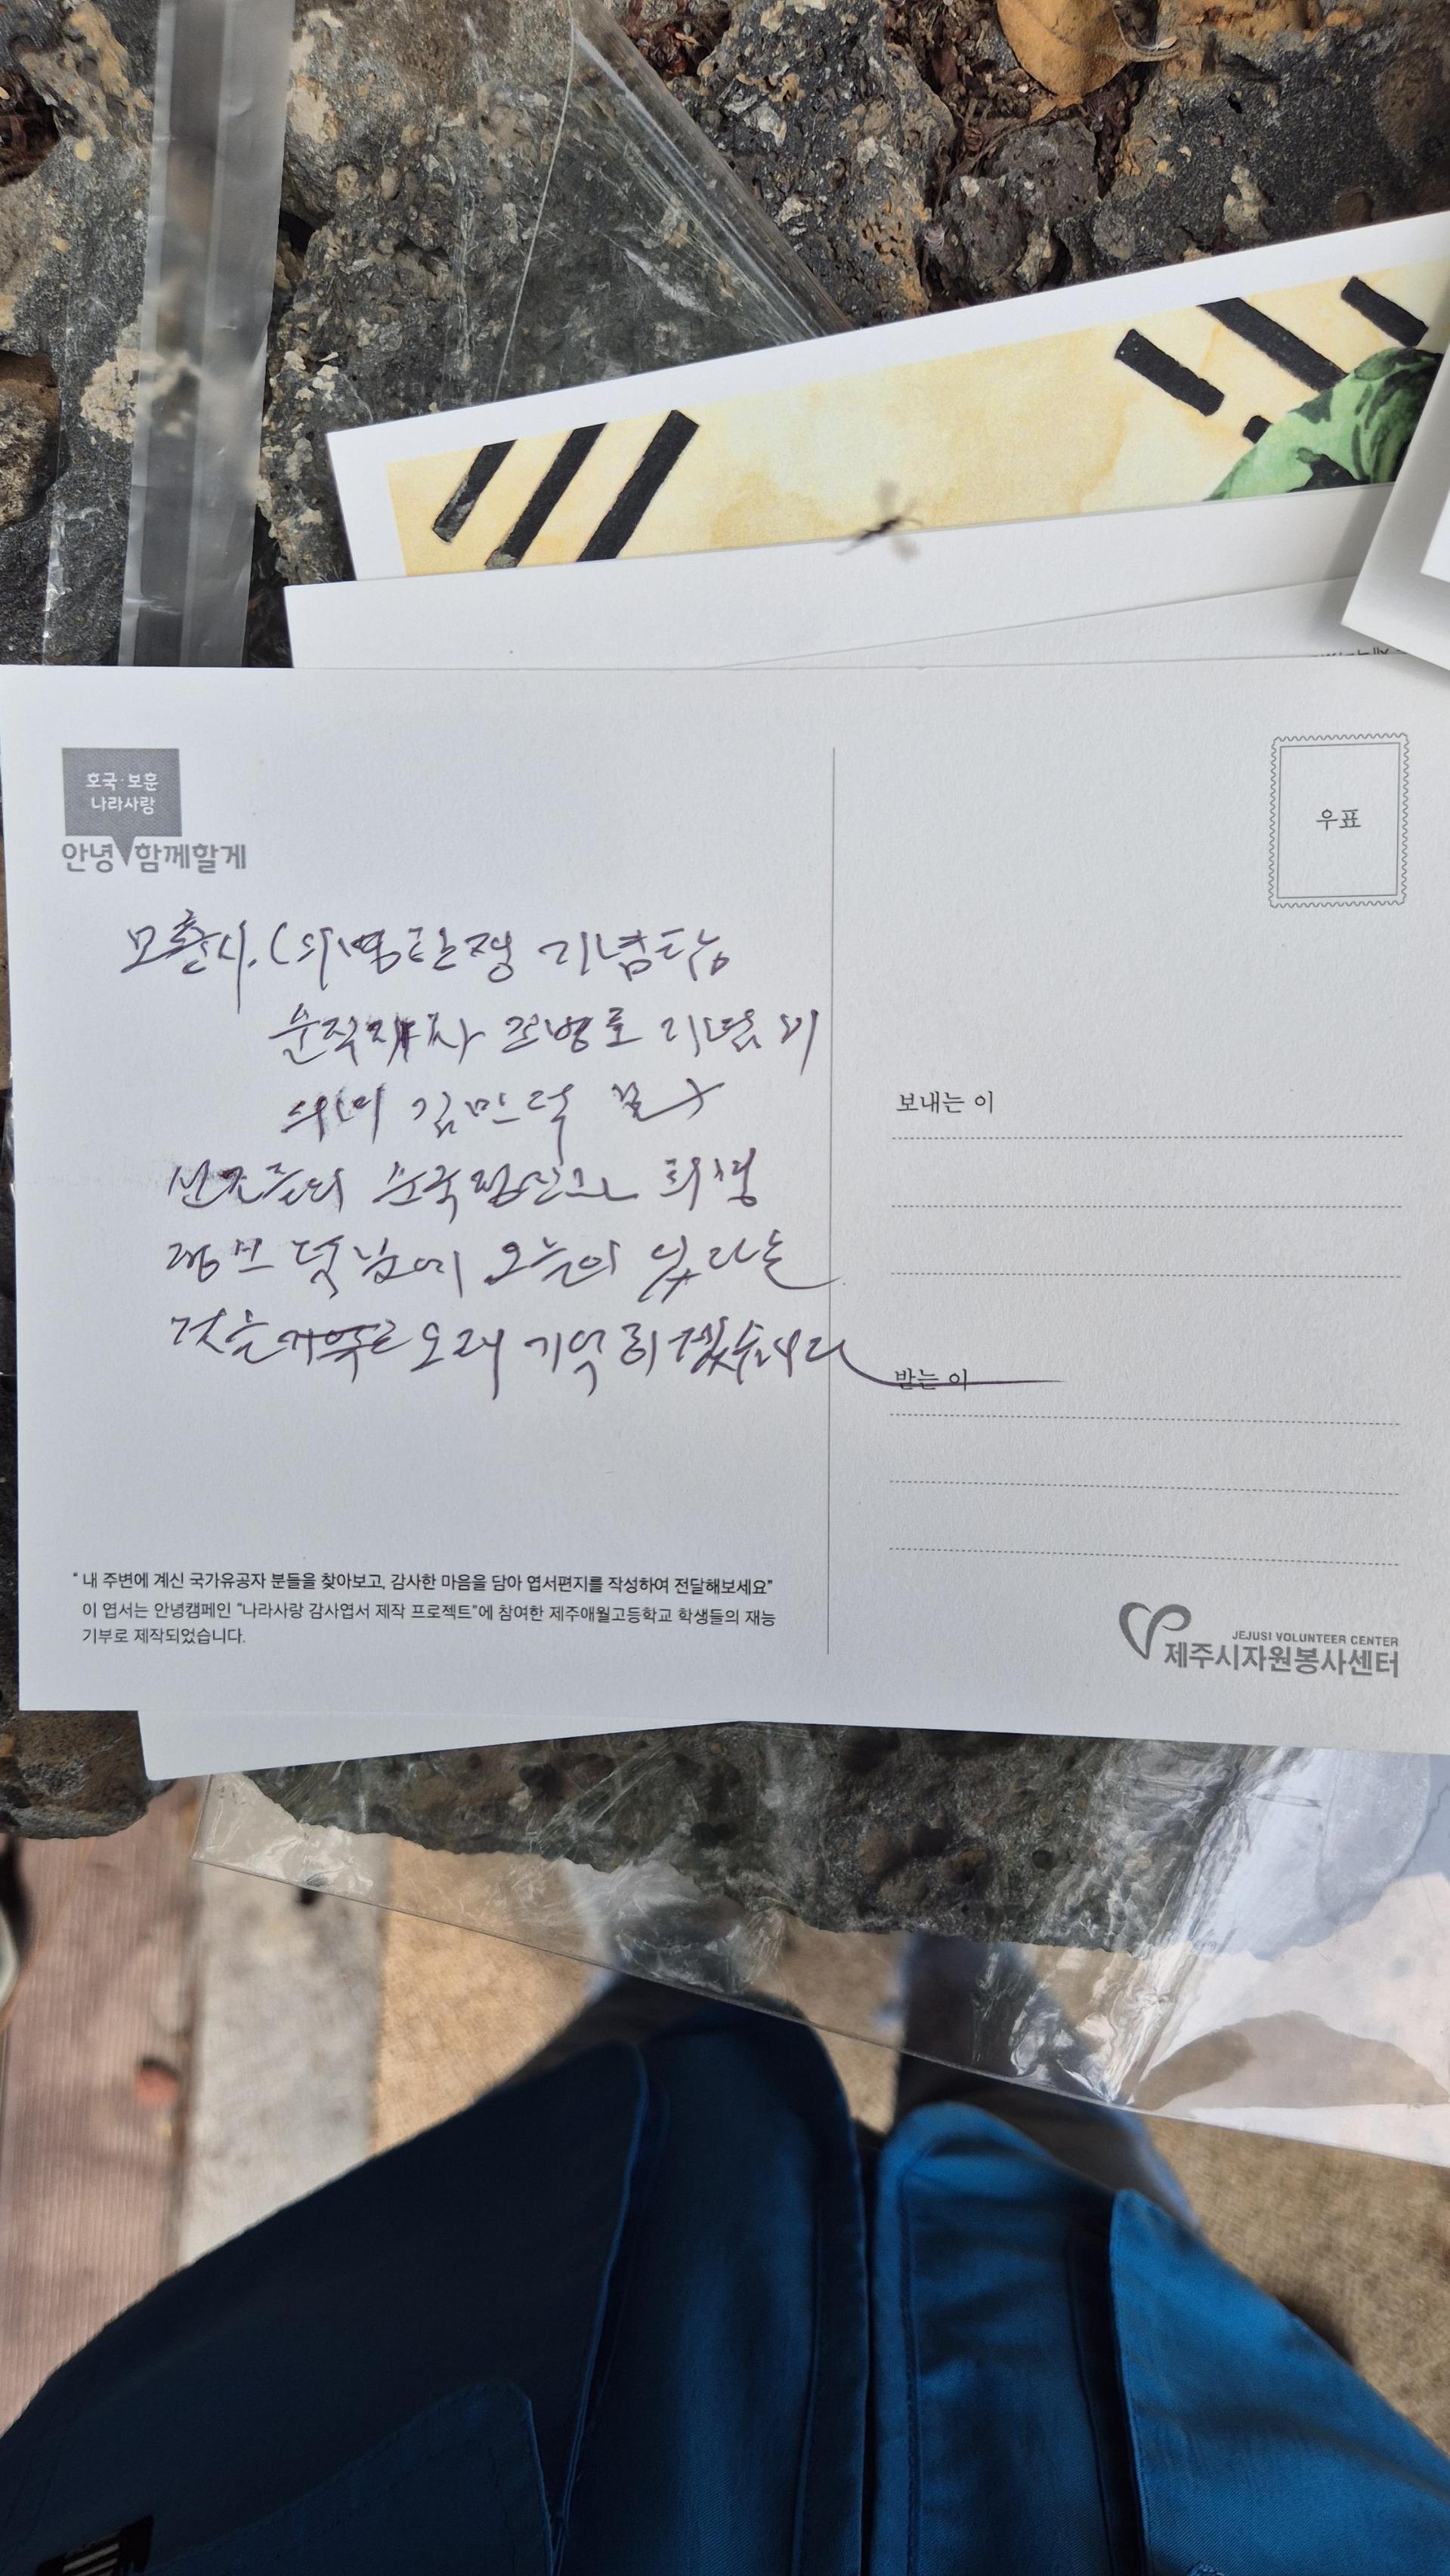 호국·보훈
나라사랑
안녕 함께할게
우표
모충사. (의병항쟁 기념탑
순직지사 조병호 기념비
의녀 김만덕 묘
선조들의 순국정신과 희생
정신 덕님에 오늘이 있다는
것을 오래 기억하겠습니다
보내는 이
받는 이
“ 내 주변에 계신 국가유공자 분들을 찾아보고, 감사한 마음을 담아 엽서편지를 작성하여 전달해보세요”
이 엽서는 안녕캠페인 “나라사랑 감사엽서 제작 프로젝트”에 참여한 제주애월고등학교 학생들의 재능
기부로 제작되었습니다.
JEJUSI VOLUNTEER CENTER
제주시자원봉사센터